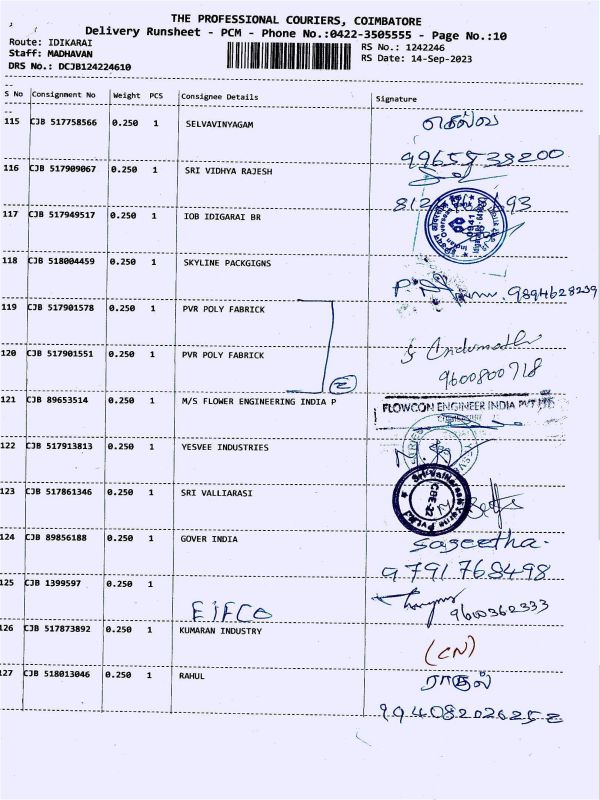 THE PROFESSIONAL COURIERS, COIMBATORE
Delivery Runsheet - PCM - Phone No.:0422-3505555 - Page No.:10
Route: IDIKARAI
RS No.: 1242246
Staff: MADHAVAN
RS Date: 14-Sep-2023
DRS No.: DCJB124224610
S No Consignment No Weight PCS Consignee Details Signature
115 CJB 517758566 0.250 1 SELVAVINYAGAM செல்வ
116 CJB 517909067 0.250 1 SRI VIDHYA RAJESH
117 CJB 517949517 0.250 1 IOB IDIGARAI BR
118 CJB 518004459 0.250 1 SKYLINE PACKGIGNS
9894628239
119 CJB 517901578 0.250 1 PVR POLY FABRICK
120 CJB 517901551 0.250 1 PVR POLY FABRICK
9600800718
2
121 CJB 89653514 0.250 1 M/S FLOWER ENGINEERING INDIA P
FLOWCON ENGINEER INDIA PVT LTD
122 CJB 517913813 0.250 1 YESVEE INDUSTRIES
123 CJB 517861346 0.250 1 SRI VALLIARASI
CBE-22
124 CJB 89856188 0.250 1 GOVER INDIA sageetha.
9791768498
125 CJB 1399597 0.250 1
EIFCO 9600362333
126 CJB 517873892 0.250 1 KUMARAN INDUSTRY (CN)
127 CJB 518013046 0.250 1 RAHUL ராகுல்